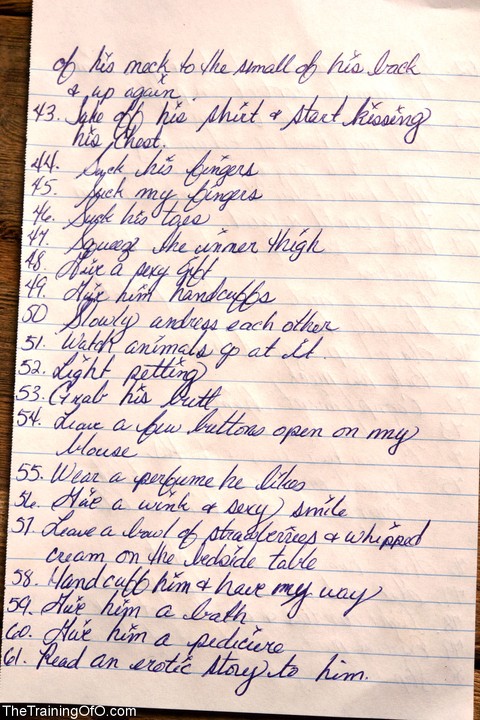 of his neck to the small of his back
& up again.
43. Take off his shirt & start kissing
his chest.
44. Suck his fingers
45. Suck my fingers
46. Suck his toes
47. Squeeze the inner thigh
48. Give a sexy gift
49. Give him handcuffs
50 Slowly undress each other
51. Watch animals go at it.
52. Light petting
53. Grab his butt
54. Leave a few buttons open on my
blouse
55. Wear a perfume he likes
56. Give a wink & sexy smile
57. Leave a bowl of strawberries & whipped
cream on the bedside table
58. Handcuff him & have my way
59. Give him a bath
60. Give him a pedicure
61. Read an erotic story to him.
TheTrainingOfO.com